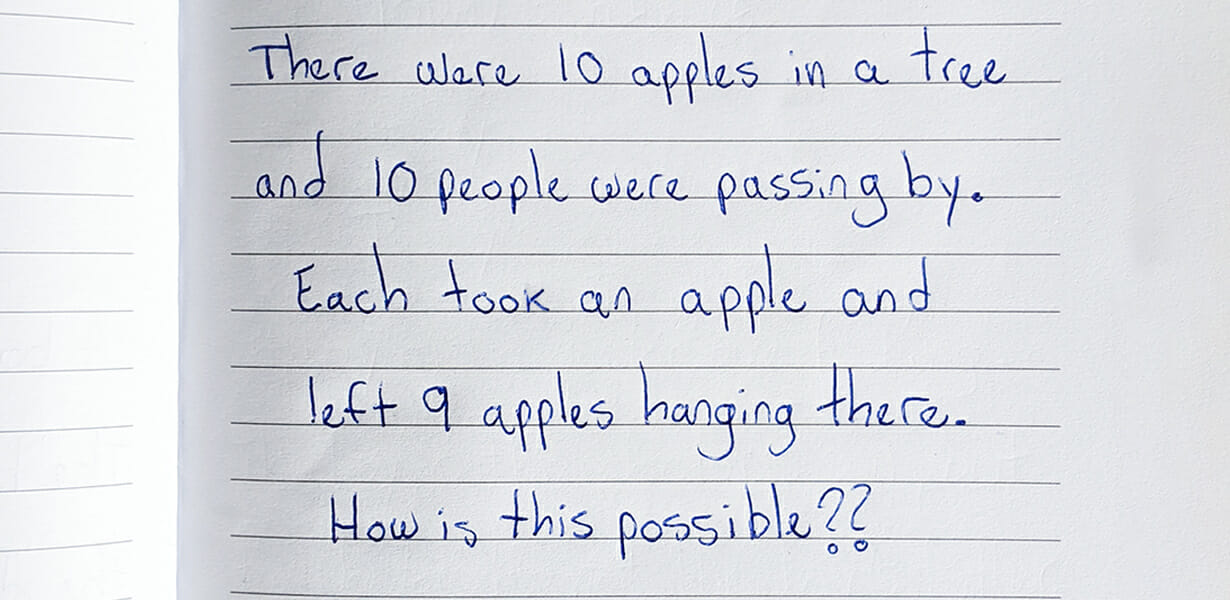 There were 10 apples in a tree
and 10 people were passing by.
Each took an apple and
left 9 apples hanging there.
How is this possible??